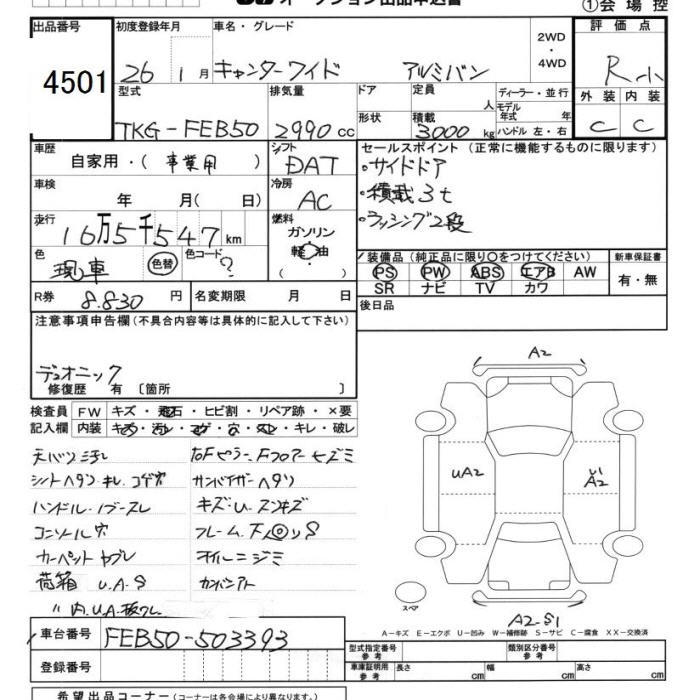 オークション出品申込書
①会場控
出品番号 初度登録年月 車名・グレード 2WD・4WD 評価点
4501
26 1月 キャンターワイド アルミバン R小
型式 排気量 ドア 定員 人 ディーラー・並行 外装 内装
TKG-FEB50 2990cc 形状 積載 3000kg モデル年式 年 ハンドル 左・右 C C
車歴 自家用・(事業用) シフト DAT セールスポイント(正常に機能するものに限ります)
・サイドドア
車検 年 月(日) 冷房 AC ・積載3t
走行 16万5千547km 燃料 ガソリン・軽油(・) ・ラッシング2段
色 現車 色替 色コード ?
装備品(純正品に限り○をつけてください) 新車保証書
PS PW ABS エアB AW 有・無
SR ナビ TV カワ
R券 8.830円 名変期限 月 日 後日品
注意事項申告欄(不具合内容等は具体的に記入して下さい)
デュオニック
修復歴 有 〔箇所 〕
検査員 FW キズ・飛石・ヒビ割・リペア跡・×要
記入欄 内装 キズ・汚レ・コゲ・穴・スレ・キレ・破レ
天バリ汚レ
シートヘタリ キレ コゲ穴 サンバイザーヘタリ
ハンドル・ノブスレ キズ・U・スンキズ
コンソール穴
カーペットヤブレ オイルニジミ
荷箱 U.A.S カンバンアト
〃内.U.A.板ワレ
A2
UA2
A2
スペア
A2.S1
A-キズ E-エクボ U-凹み W-補修跡 S-サビ C-腐食 XX-交換済
車台番号 FEB50-503393
登録番号
型式指定番号 参考 類別区分番号 参考
車庫証明用 参考 長さ cm 幅 cm 高さ cm
希望出品コーナー(コーナーは各会場により異なります。)